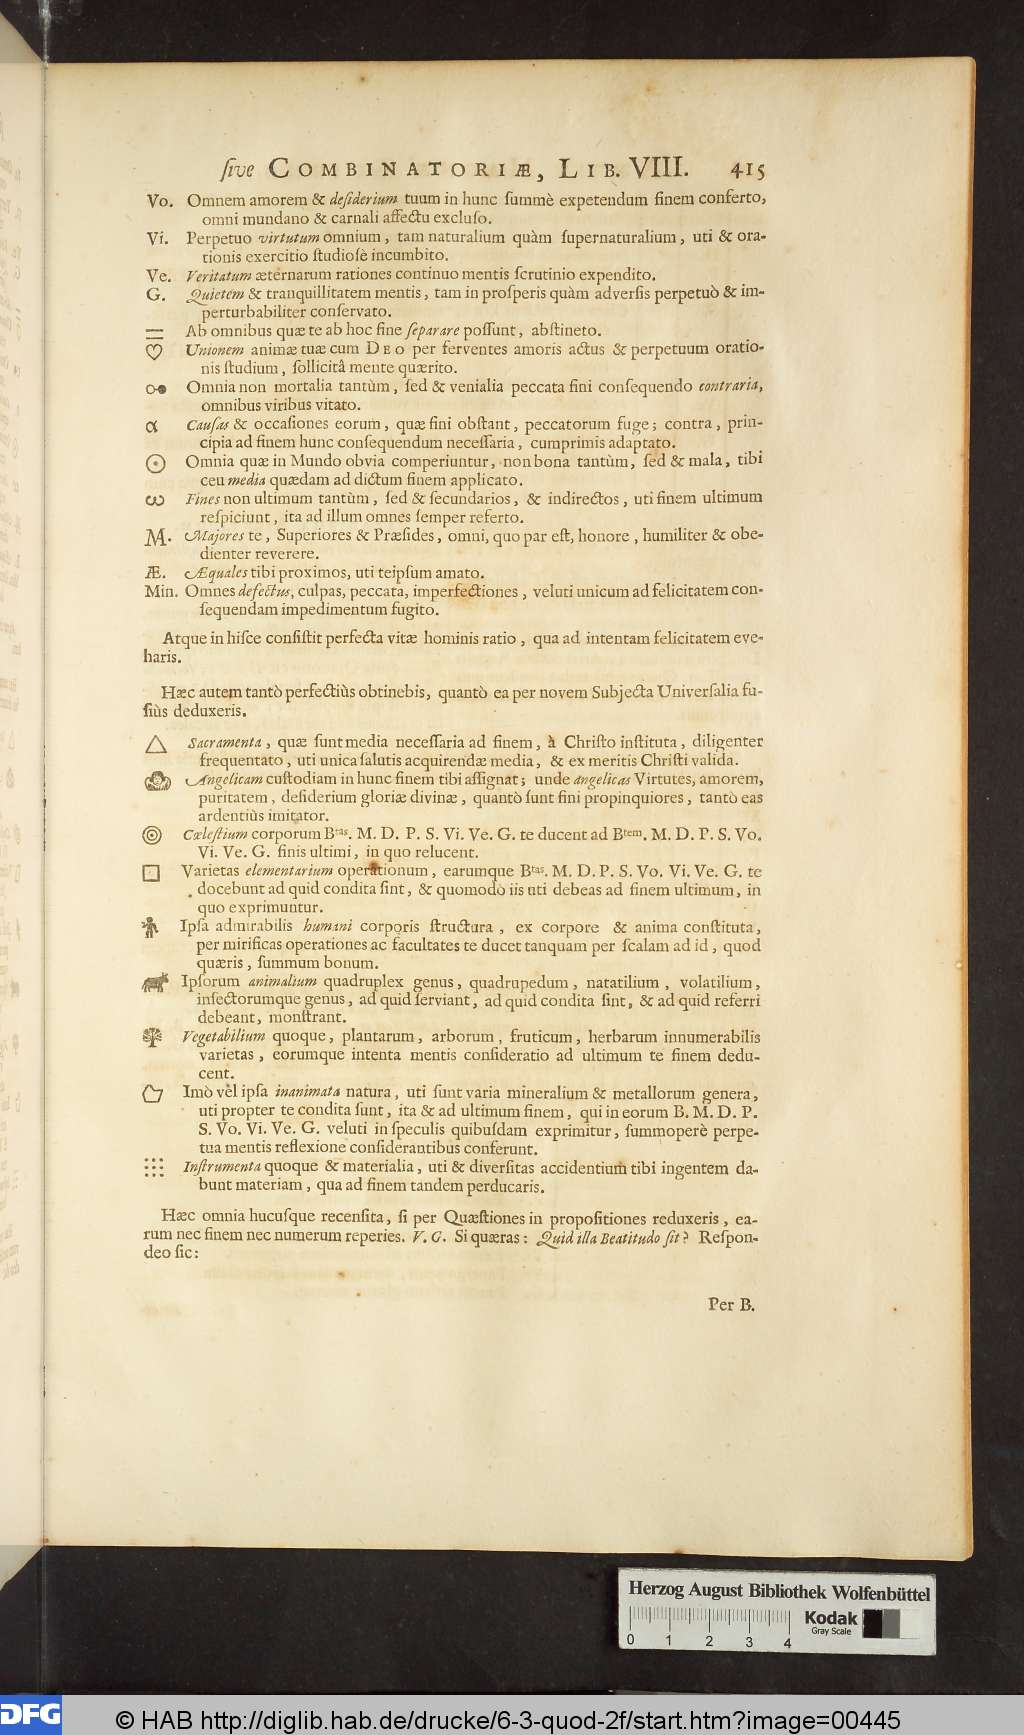 ſive COMBINATORIÆ, LIB. VIII. 415
Vo. Omnem amorem & deſiderium tuum in hunc ſummè expetendum finem conferto,
omni mundano & carnali affectu excluſo.
Vi. Perpetuo virtutum omnium, tam naturalium quàm ſupernaturalium, uti & ora-
tionis exercitio ſtudioſè incumbito.
Ve. Veritatum æternarum rationes continuo mentis ſcrutinio expendito.
G. Quietem & tranquillitatem mentis, tam in proſperis quàm adverſis perpetuò & im-
perturbabiliter conſervato.
= Ab omnibus quæ te ab hoc fine ſeparare poſſunt, abſtineto.
♡ Unionem animæ tuæ cum DEO per ferventes amoris actus & perpetuum oratio-
nis ſtudium, ſollicitâ mente quærito.
Omnia non mortalia tantùm, ſed & venialia peccata fini conſequendo contraria,
omnibus viribus vitato.
α Cauſas & occaſiones eorum, quæ fini obſtant, peccatorum fuge; contra, prin-
cipia ad finem hunc conſequendum neceſſaria, cumprimis adaptato.
☉ Omnia quæ in Mundo obvia comperiuntur, non bona tantùm, ſed & mala, tibi
ceu media quædam ad dictum finem applicato.
ω Fines non ultimum tantùm, ſed & ſecundarios, & indirectos, uti finem ultimum
reſpiciunt, ita ad illum omnes ſemper referto.
M. Majores te, Superiores & Præſides, omni, quo par eſt, honore, humiliter & obe-
dienter reverere.
Æ. Æquales tibi proximos, uti teipſum amato.
Min. Omnes defectus, culpas, peccata, imperfectiones, veluti unicum ad felicitatem con-
ſequendam impedimentum fugito.
Atque in hiſce conſiſtit perfecta vitæ hominis ratio, qua ad intentam felicitatem eve-
haris.
Hæc autem tantò perfectiùs obtinebis, quantò ea per novem Subjecta Univerſalia fu-
ſiùs deduxeris.
△ Sacramenta, quæ ſunt media neceſſaria ad finem, à Chriſto inſtituta, diligenter
frequentato, uti unica ſalutis acquirendæ media, & ex meritis Chriſti valida.
Angelicam cuſtodiam in hunc finem tibi aſſignat; unde angelicas Virtutes, amorem,
puritatem, deſiderium gloriæ divinæ, quantò ſunt fini propinquiores, tantò eas
ardentiùs imitator.
◎ Cæleſtium corporum Btas. M. D. P. S. Vi. Ve. G. te ducent ad Btem. M. D. P. S. Vo.
Vi. Ve. G. finis ultimi, in quo relucent.
□ Varietas elementarium operationum, earumque Btas. M. D. P. S. Vo. Vi. Ve. G. te
docebunt ad quid condita ſint, & quomodò iis uti debeas ad finem ultimum, in
quo exprimuntur.
Ipſa admirabilis humani corporis ſtructura, ex corpore & anima conſtituta,
per mirificas operationes ac facultates te ducet tanquam per ſcalam ad id, quod
quæris, ſummum bonum.
Ipſorum animalium quadruplex genus, quadrupedum, natatilium, volatilium,
inſectorumque genus, ad quid ſerviant, ad quid condita ſint, & ad quid referri
debeant, monſtrant.
Vegetabilium quoque, plantarum, arborum, fruticum, herbarum innumerabilis
varietas, eorumque intenta mentis conſideratio ad ultimum te finem dedu-
cent.
Imò vel ipſa inanimata natura, uti ſunt varia mineralium & metallorum genera,
uti propter te condita ſunt, ita & ad ultimum finem, qui in eorum B. M. D. P.
S. Vo. Vi. Ve. G. veluti in ſpeculis quibuſdam exprimitur, ſummoperè perpe-
tua mentis reflexione conſiderantibus conferunt.
Inſtrumenta quoque & materialia, uti & diverſitas accidentium tibi ingentem da-
bunt materiam, qua ad finem tandem perducaris.
Hæc omnia hucuſque recenſita, ſi per Quæſtiones in propoſitiones reduxeris, ea-
rum nec finem nec numerum reperies. V. G. Si quæras: Quid illa Beatitudo ſit? Reſpon-
deo ſic:
Per B.
Herzog August Bibliothek Wolfenbüttel
Kodak
Gray Scale
0 1 2 3 4
DFG
© HAB http://diglib.hab.de/drucke/6-3-quod-2f/start.htm?image=00445